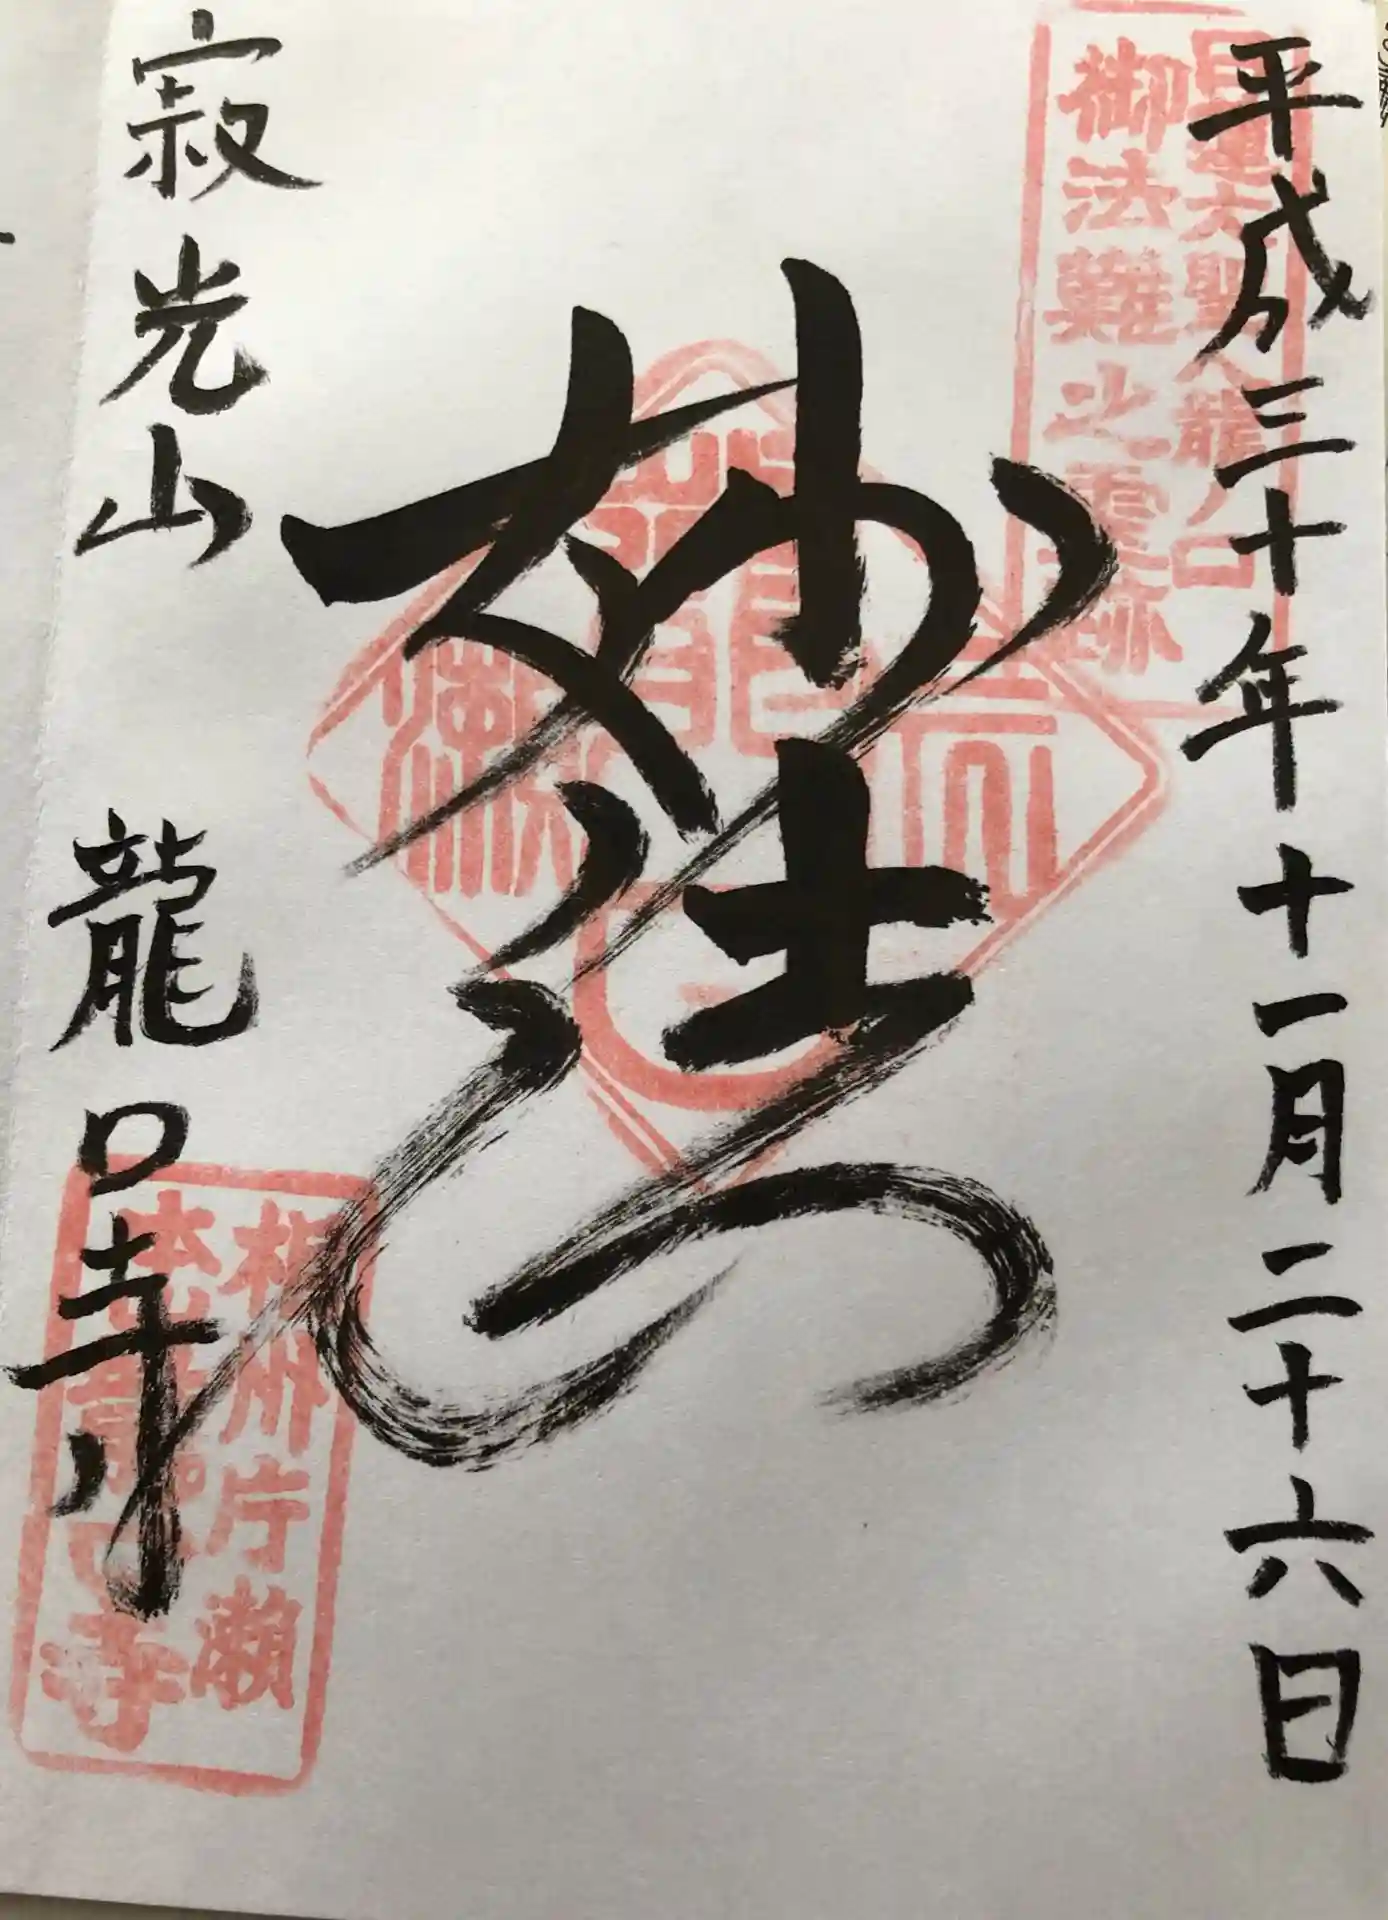 平成三十年十一月二十六日
日蓮大聖人龍ノ口
御法難之霊跡
妙法
寂光山 龍口寺
相州片瀬
龍口寺